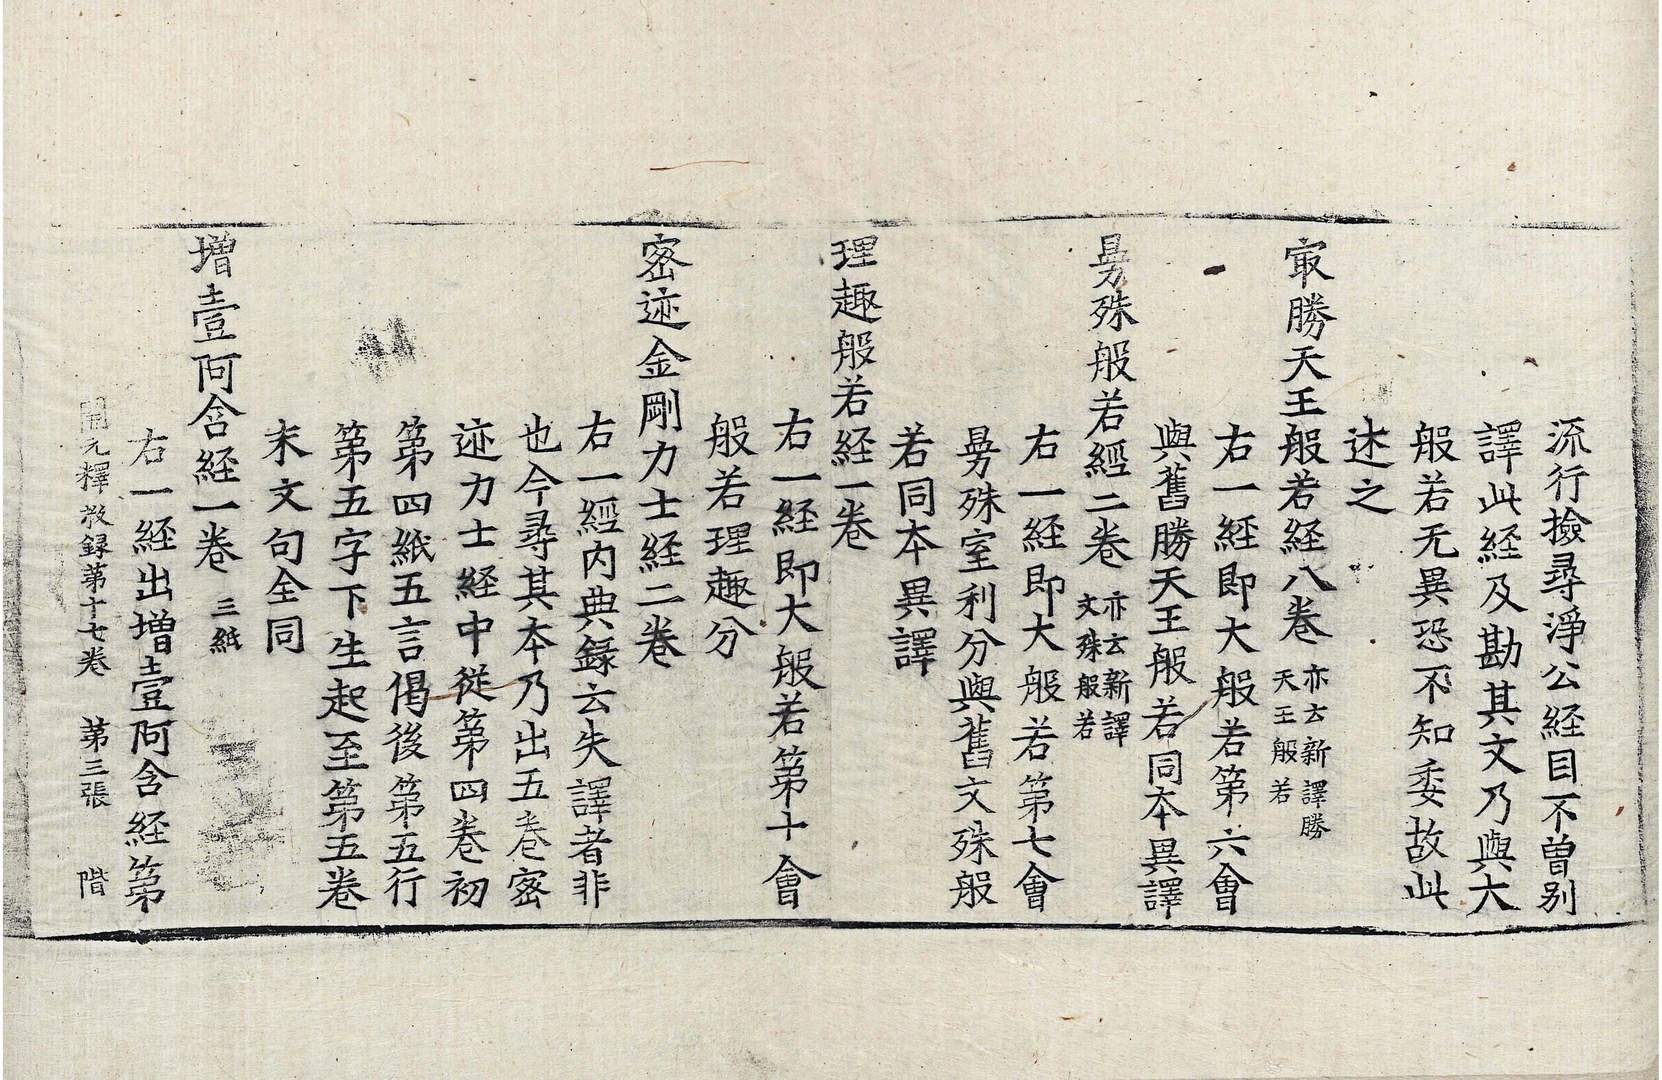 流行撿尋淨公経目不曽別
譯此経及勘其文乃與大
般若无異恐不知委故此
述之
冣勝天王般若経八卷 亦云新譯勝天王般若
右一経即大般若第六會
與舊勝天王般若同本異譯
曼殊般若經二卷 亦云新譯文殊般若
右一経即大般若第七會
曼殊室利分與舊文殊般
若同本異譯
理趣般若経一卷
右一経即大般若第十會
般若理趣分
密迹金剛力士経二卷
右一經内典録云失譯者非
也今尋其本乃出五卷密
迹力士経中従第四卷初
第四紙五言偈後第五行
第五字下生起至第五卷
末文句全同
増壹阿含経一卷 三紙
右一経出増壹阿含経第
開元釋教録第十七卷 第三張 階